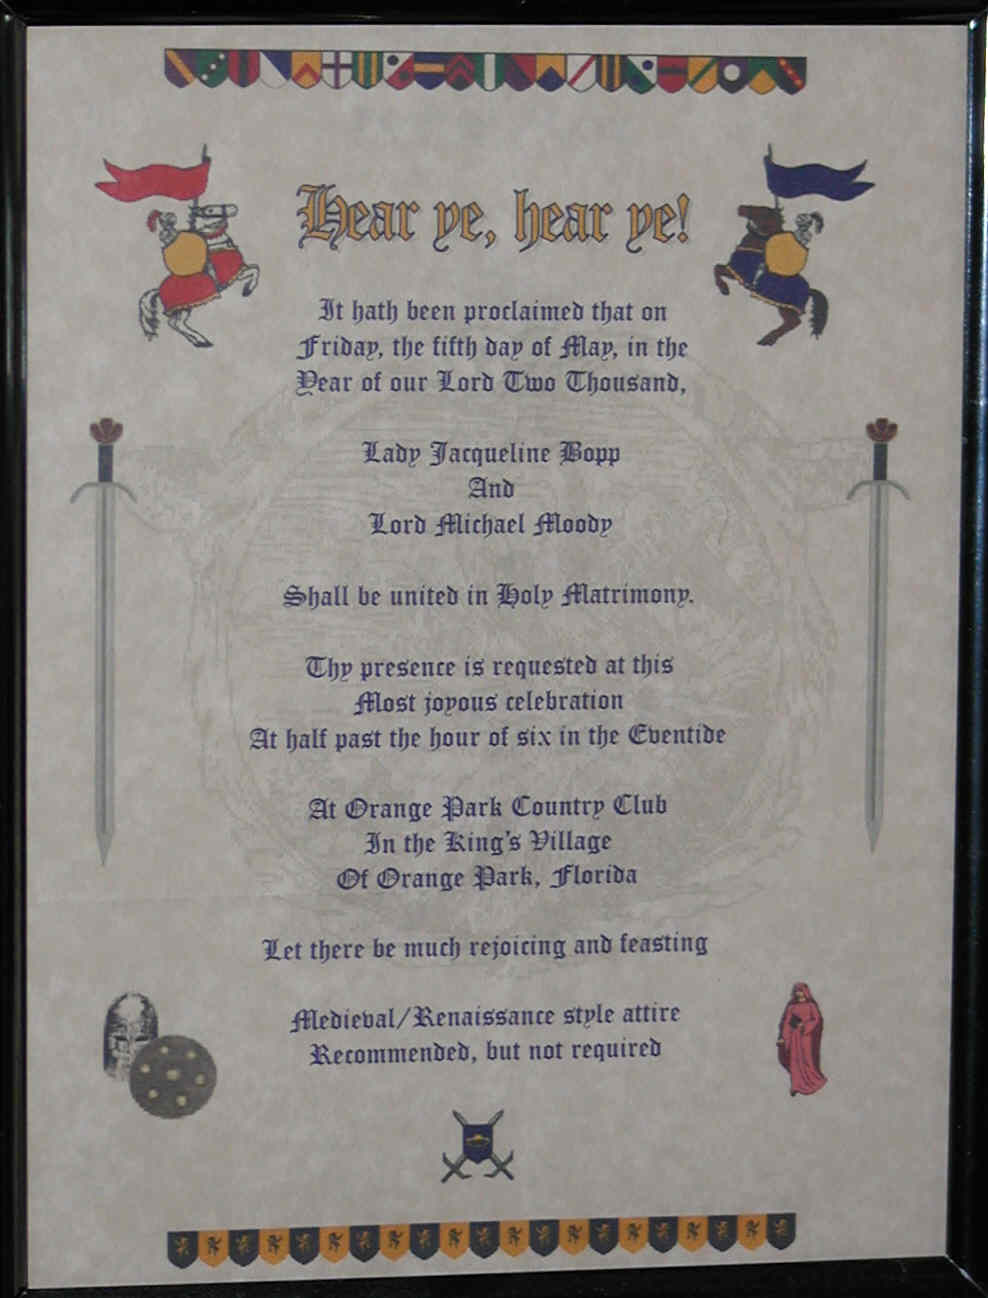 Hear ye, hear ye!
It hath been proclaimed that on
Friday, the fifth day of May, in the
Year of our Lord Two Thousand,
Lady Jacqueline Bopp
And
Lord Michael Moody
Shall be united in Holy Matrimony.
Thy presence is requested at this
Most joyous celebration
At half past the hour of six in the Eventide
At Orange Park Country Club
In the King's Village
Of Orange Park, Florida
Let there be much rejoicing and feasting
Medieval/Renaissance style attire
Recommended, but not required